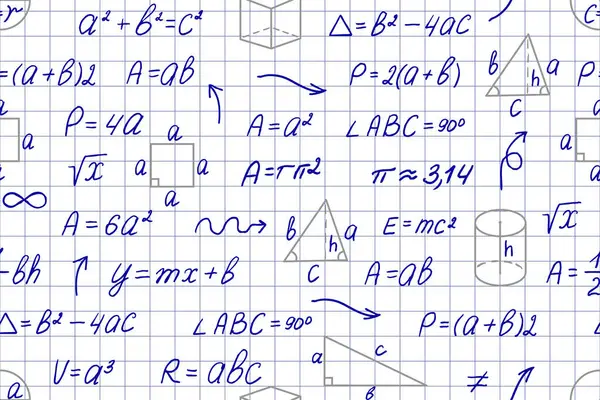 =r a² + b² = c² Δ = b² - 4ac c=
=(a+b)2 A = ab P = 2(a+b) b h a c P=
a P = 4a a A = a² ∠ABC = 90° a
a √x a a a A = rπ2 π ≈ 3,14 a
∞ A = 6a² b h a c E = mc² h √x
-bh y = mx + b A = ab A = 1/2
Δ = b² - 4ac ∠ABC = 90° P = (a+b)2
V = a³ R = abc a c b ≠
a